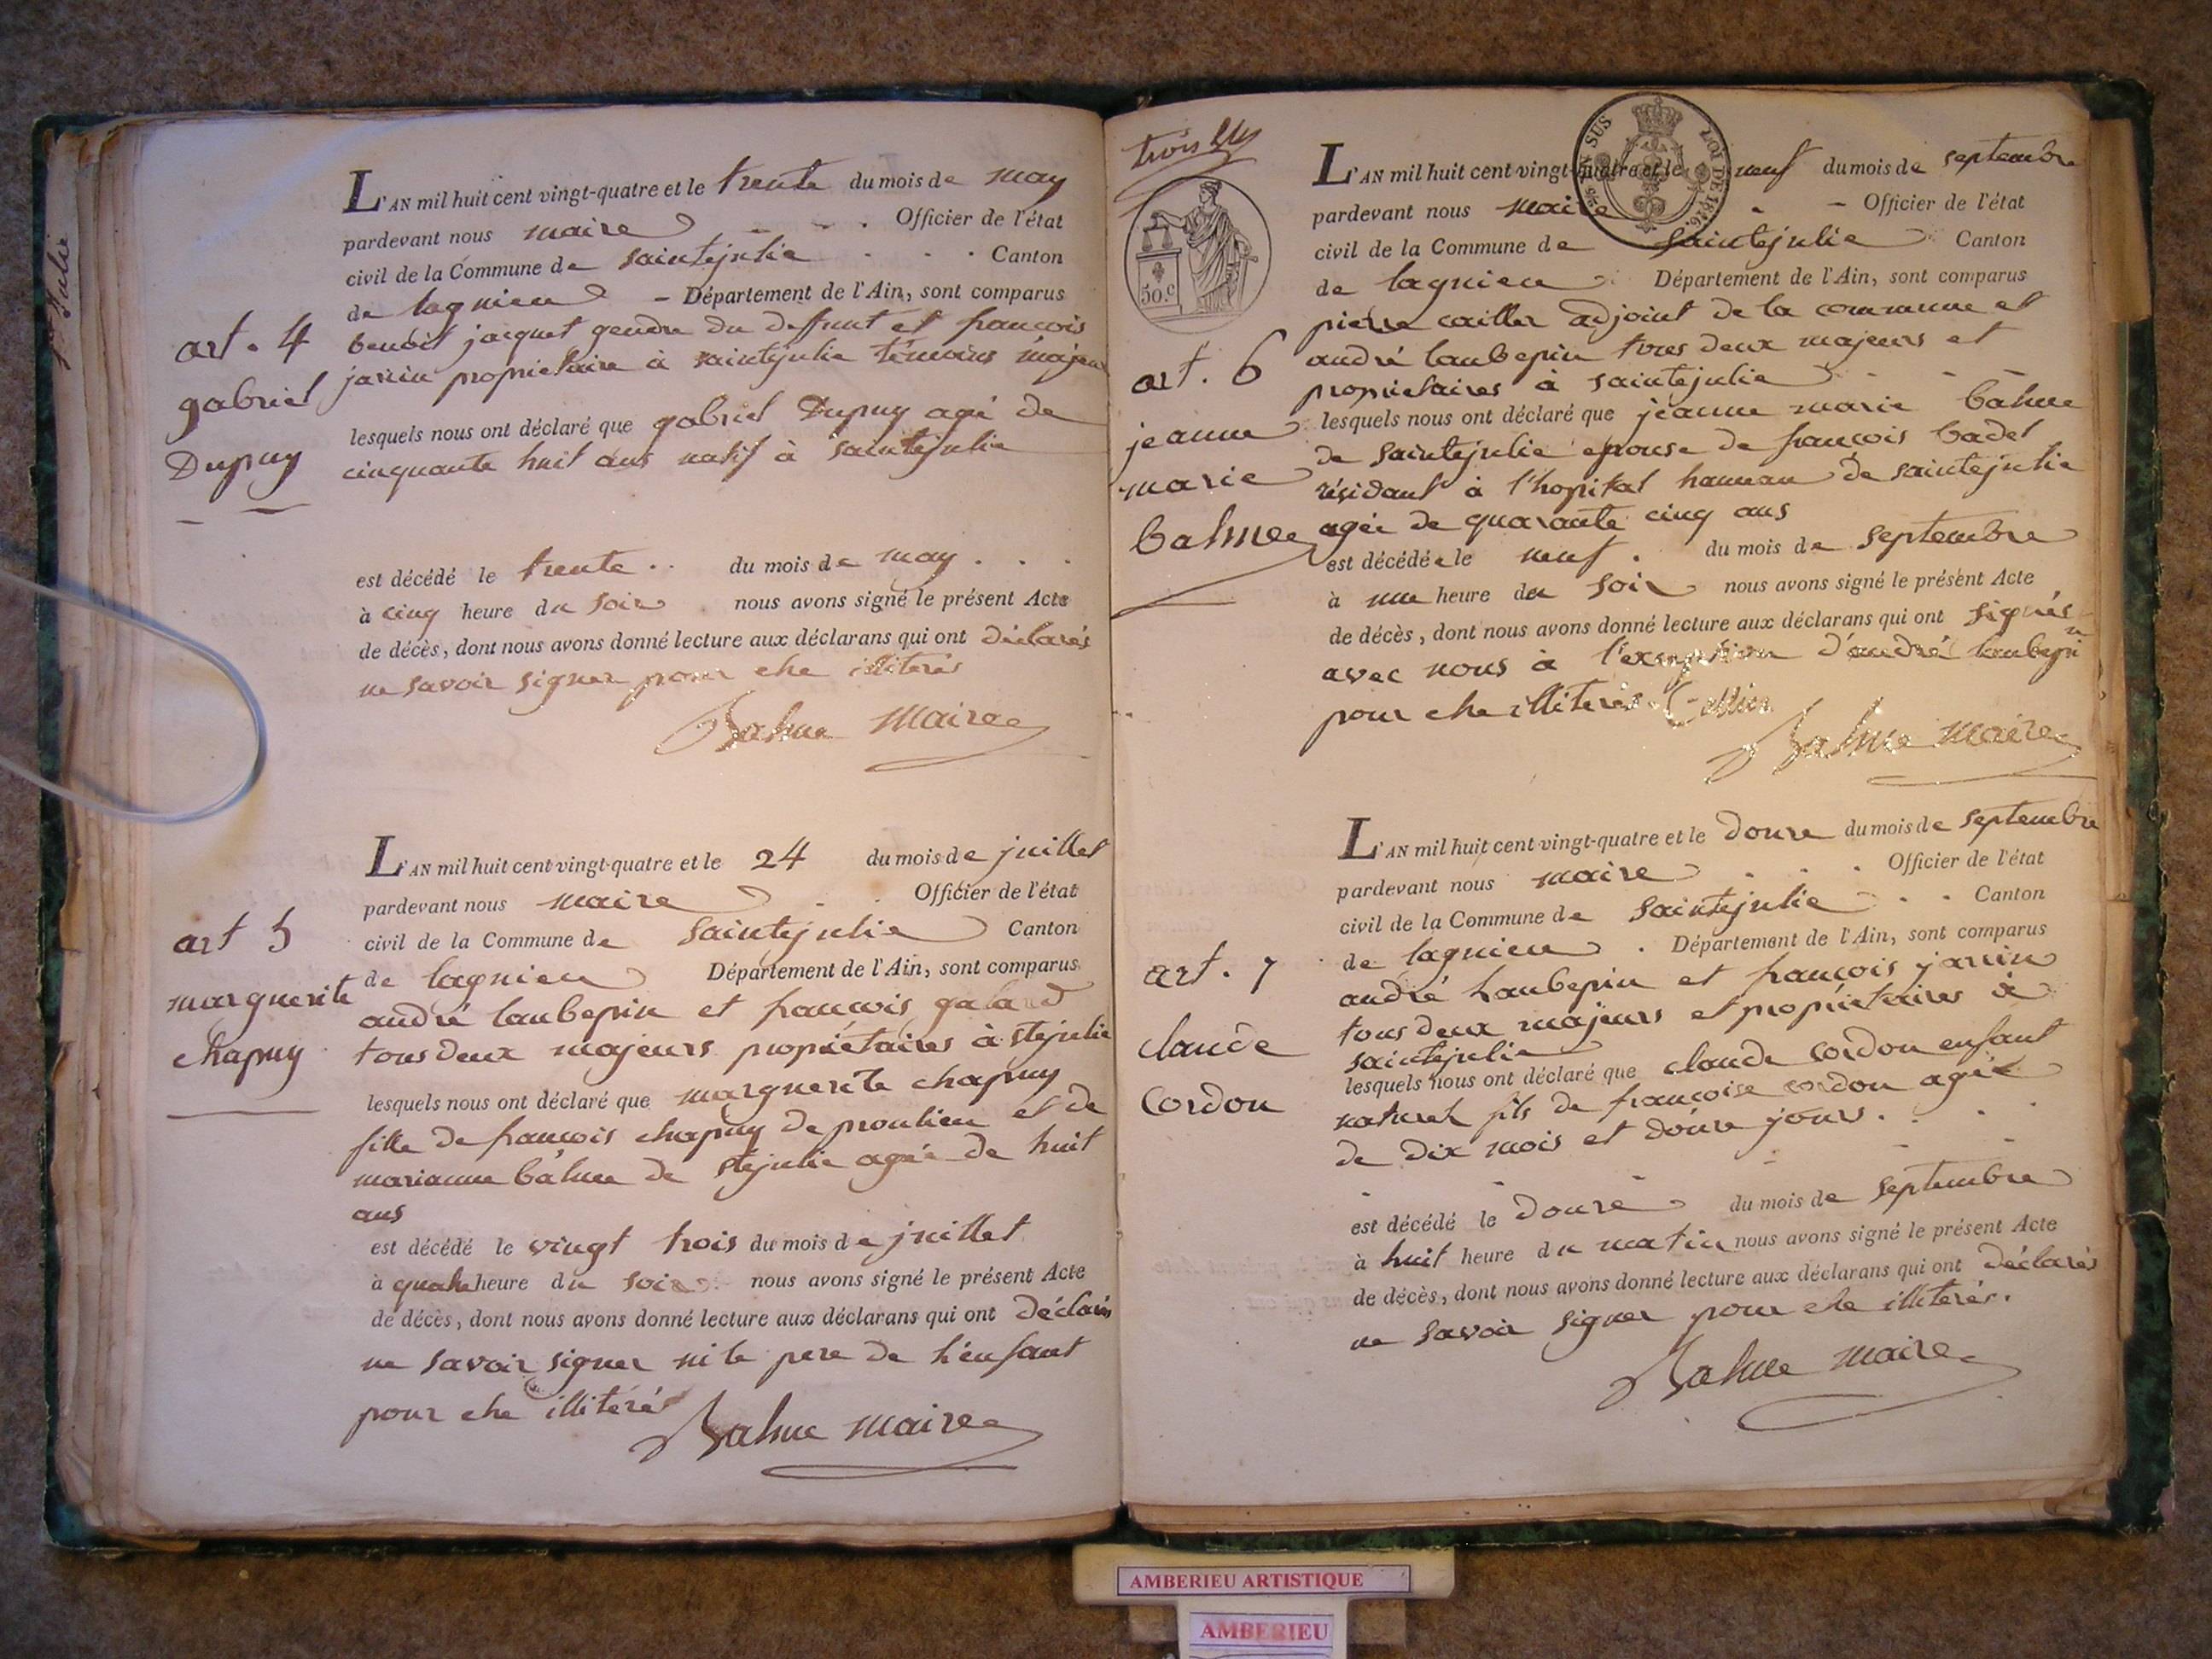 Ste Julie
art. 4
gabriel
Dupuy
L'AN mil huit cent vingt-quatre et le trente du mois de may
pardevant nous maire Officier de l'état
civil de la Commune de saintejulie Canton
de lagnieu Département de l'Ain, sont comparus
benoit jacquet gendre du deffunt et francois
jarrin proprietaire à saintejulie témoins majeu
lesquels nous ont déclaré que gabriel Dupuy agé de
cinquante huit ans natif à saintejulie
est décédé le trente du mois de may
à cinq heure du soir nous avons signé le présent Acte
de décès, dont nous avons donné lecture aux déclarans qui ont déclarés
ne savoir signer pour etre illiterés
Balme Maire
art 5
marguerite
chapuy
L'AN mil huit cent vingt-quatre et le 24 du mois de juillet
pardevant nous maire Officier de l'état
civil de la Commune de saintejulie Canton
de lagnieu Département de l'Ain, sont comparus
andré laubepin et francois galand
tous deux majeurs propriétaires à stejulie
lesquels nous ont déclaré que marguerite chapuy
fille de francois chapuy de proulieu et de
marianne bálme de stejulie agée de huit
ans
est décédé le vingt trois du mois de juillet
à quatre heure du soir nous avons signé le présent Acte
de décès, dont nous avons donné lecture aux déclarans qui ont déclarés
ne savoir signer ni le pere de l'énfant
pour etre illiterés
Balme maire
trois
50.c
EN SUS
LOI DE 1816.
art. 6
jeanne
marie
balme
L'AN mil huit cent vingt-quatre et le neuf du mois de septembre
pardevant nous maire Officier de l'état
civil de la Commune de saintejulie Canton
de lagnieu Département de l'Ain, sont comparus
pierre cailler adjoint de la commune et
andré laubepin tous deux majeurs et
proprietaires à saintejulie
lesquels nous ont déclaré que jeanne marie bálme
de saintejulie épouse de francois badet
résidant à l'hopital hameau de saintejulie
agée de quarante cinq ans
est décédée le neuf du mois de septembre
à une heure du soir nous avons signé le présent Acte
de décès, dont nous avons donné lecture aux déclarans qui ont signés
avec nous à l'exception d'andré laubepin
pour etre illiterés
Balme maire
art. 7
claude
Cordon
L'AN mil huit cent vingt-quatre et le douze du mois de septembre
pardevant nous maire Officier de l'état
civil de la Commune de saintejulie Canton
de lagnieu Département de l'Ain, sont comparus
andré Laubepin et francois jarrin
tous deux majeurs et propriétaires à
saintejulie
lesquels nous ont déclaré que claude cordon enfant
naturel fils de francoise cordon agée
de dix mois et douze jours.
est décédé le douze du mois de septembre
à huit heure du matin nous avons signé le présent Acte
de décès, dont nous avons donné lecture aux déclarans qui ont déclarés
ne savoir signer pour etre illiterés.
Balme maire
AMBERIEU ARTISTIQUE
AMBERIEU